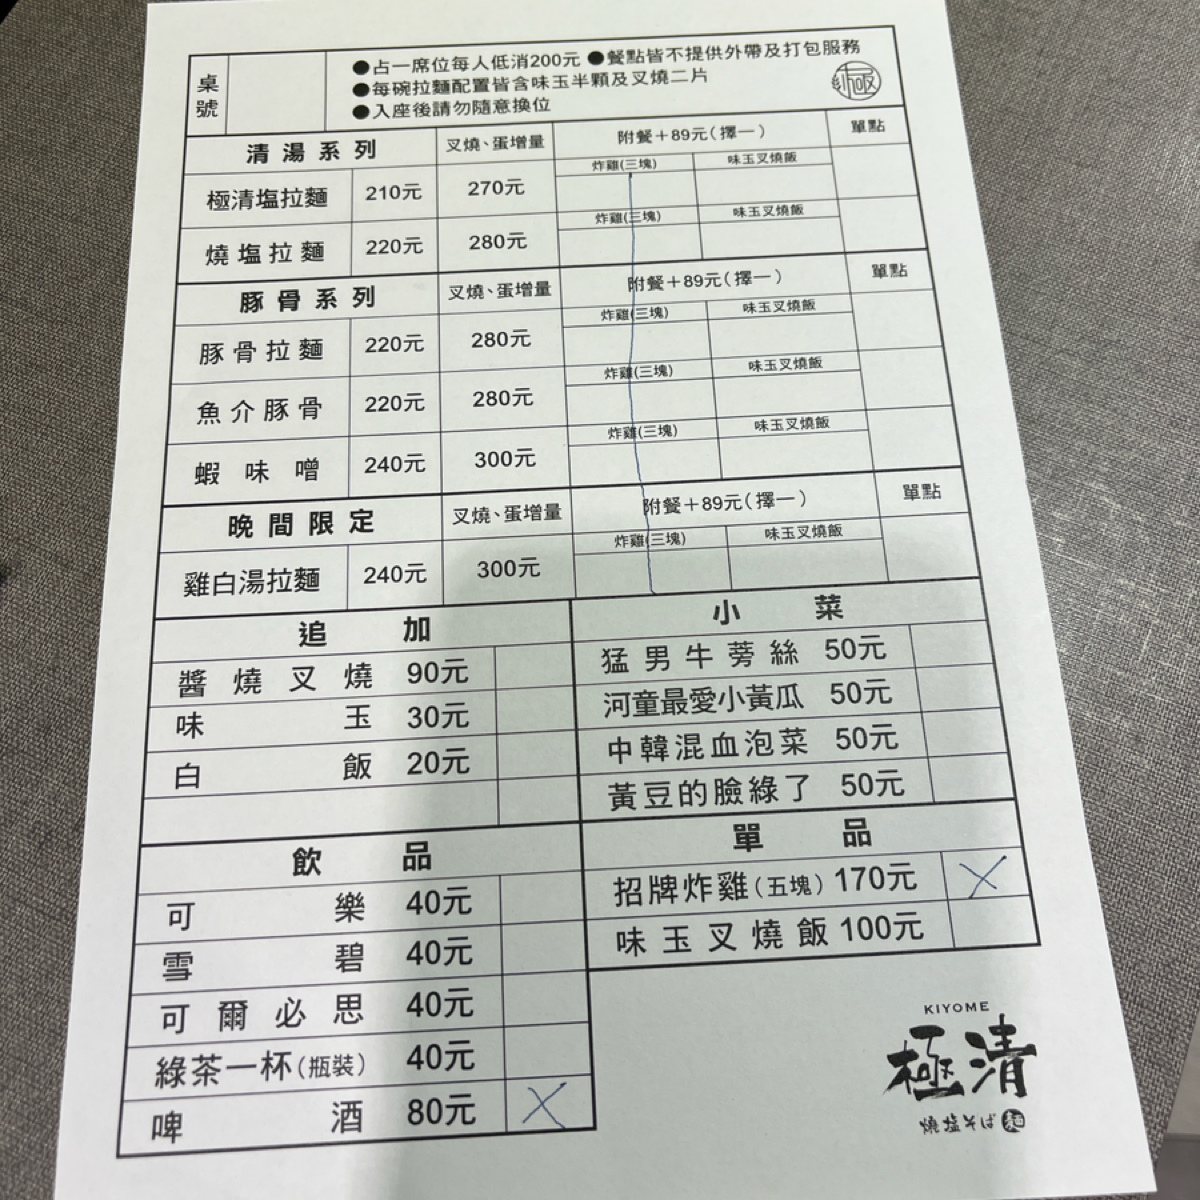 桌號
●占一席位每人低消200元 ●餐點皆不提供外帶及打包服務
●每碗拉麵配置皆含味玉半顆及叉燒二片
●入座後請勿隨意換位
極
清湯系列 叉燒、蛋增量 附餐+89元(擇一) 單點
極清塩拉麵 210元 270元 炸雞(三塊) 味玉叉燒飯
燒塩拉麵 220元 280元 炸雞(三塊) 味玉叉燒飯
豚骨系列 叉燒、蛋增量 附餐+89元(擇一) 單點
豚骨拉麵 220元 280元 炸雞(三塊) 味玉叉燒飯
魚介豚骨 220元 280元 炸雞(三塊) 味玉叉燒飯
蝦味噌 240元 300元 炸雞(三塊) 味玉叉燒飯
晚間限定 叉燒、蛋增量 附餐+89元(擇一) 單點
雞白湯拉麵 240元 300元 炸雞(三塊) 味玉叉燒飯
追加
醬燒叉燒 90元
味玉 30元
白飯 20元
小菜
猛男牛蒡絲 50元
河童最愛小黃瓜 50元
中韓混血泡菜 50元
黃豆的臉綠了 50元
飲品
可樂 40元
雪碧 40元
可爾必思 40元
綠茶一杯(瓶裝) 40元
啤酒 80元
單品
招牌炸雞(五塊) 170元
味玉叉燒飯 100元
KIYOME
極清
燒塩そば 麵